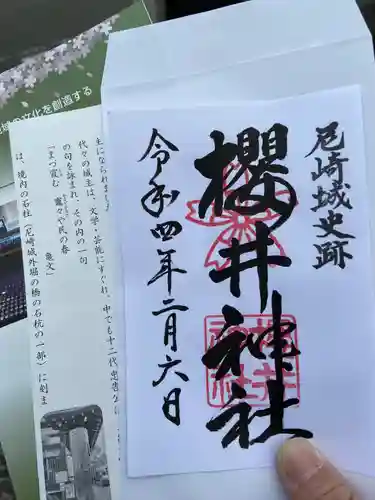 尼崎城史跡
櫻井神社
令和四年二月六日
の文化を創造する
主になられまし
代々の城主は、文学・芸能にすぐれ、中でも十二代忠告な
の句を詠まれ、その内の一句
「まつ宜む 竃々や民の春
亀文」
は、境内の石社(尼崎城外堀の橋の石杭の一部)に刻ま